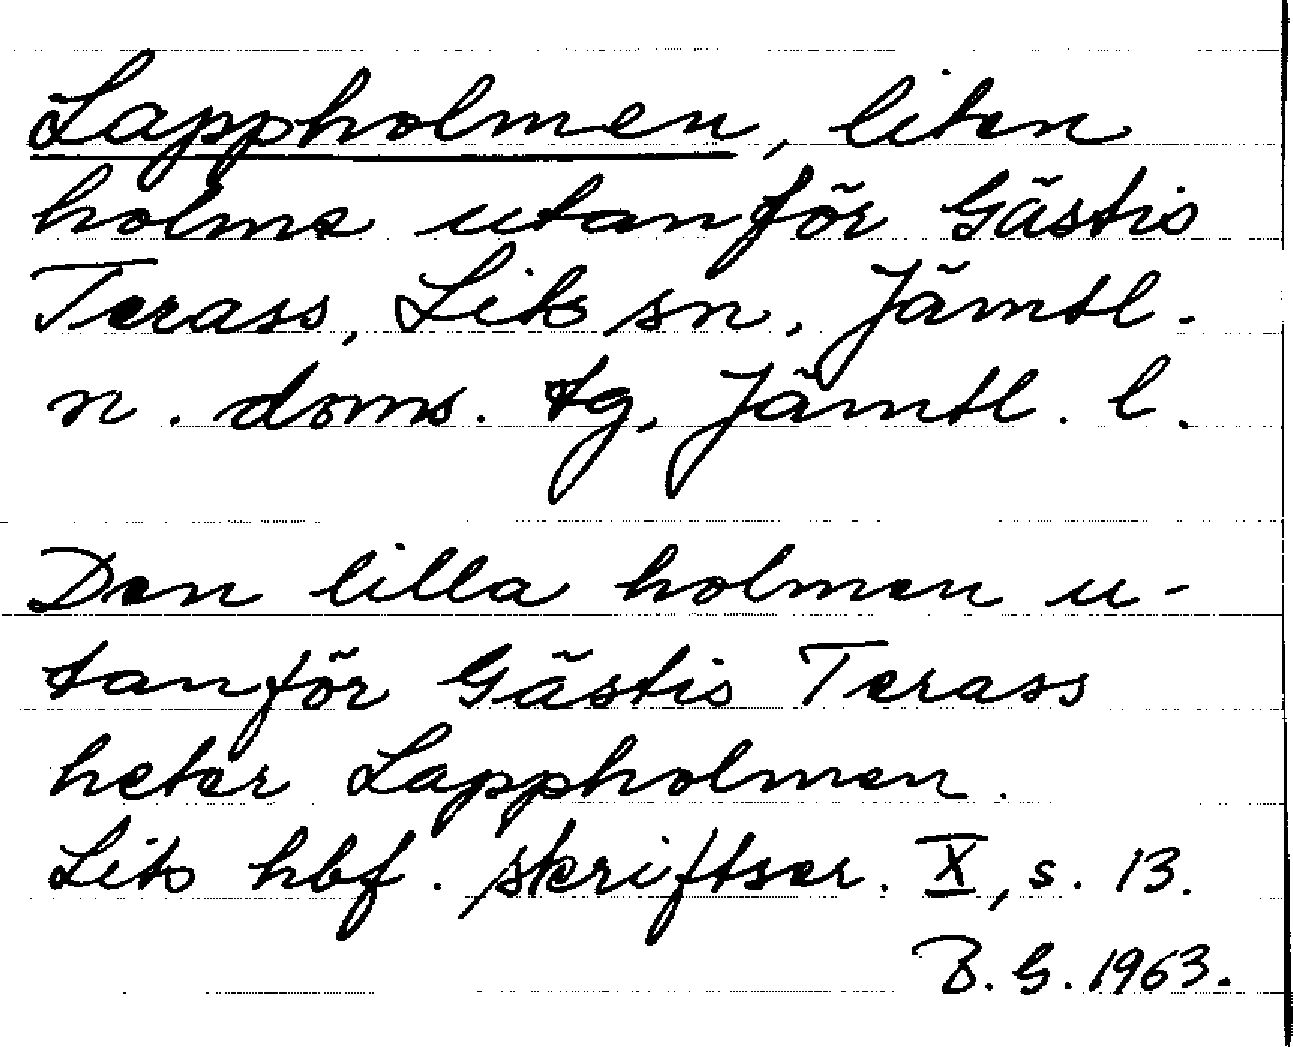 Lappholmen, liten
holme utanför Gästis
Terass, Lits sn, Jämtl.
n. doms. tg, Jämtl. l.
Den lilla holmen u-
tanför Gästis Terass
heter Lappholmen.
Lits hbf. skriftser. X, s. 13.
B. G. 1963.